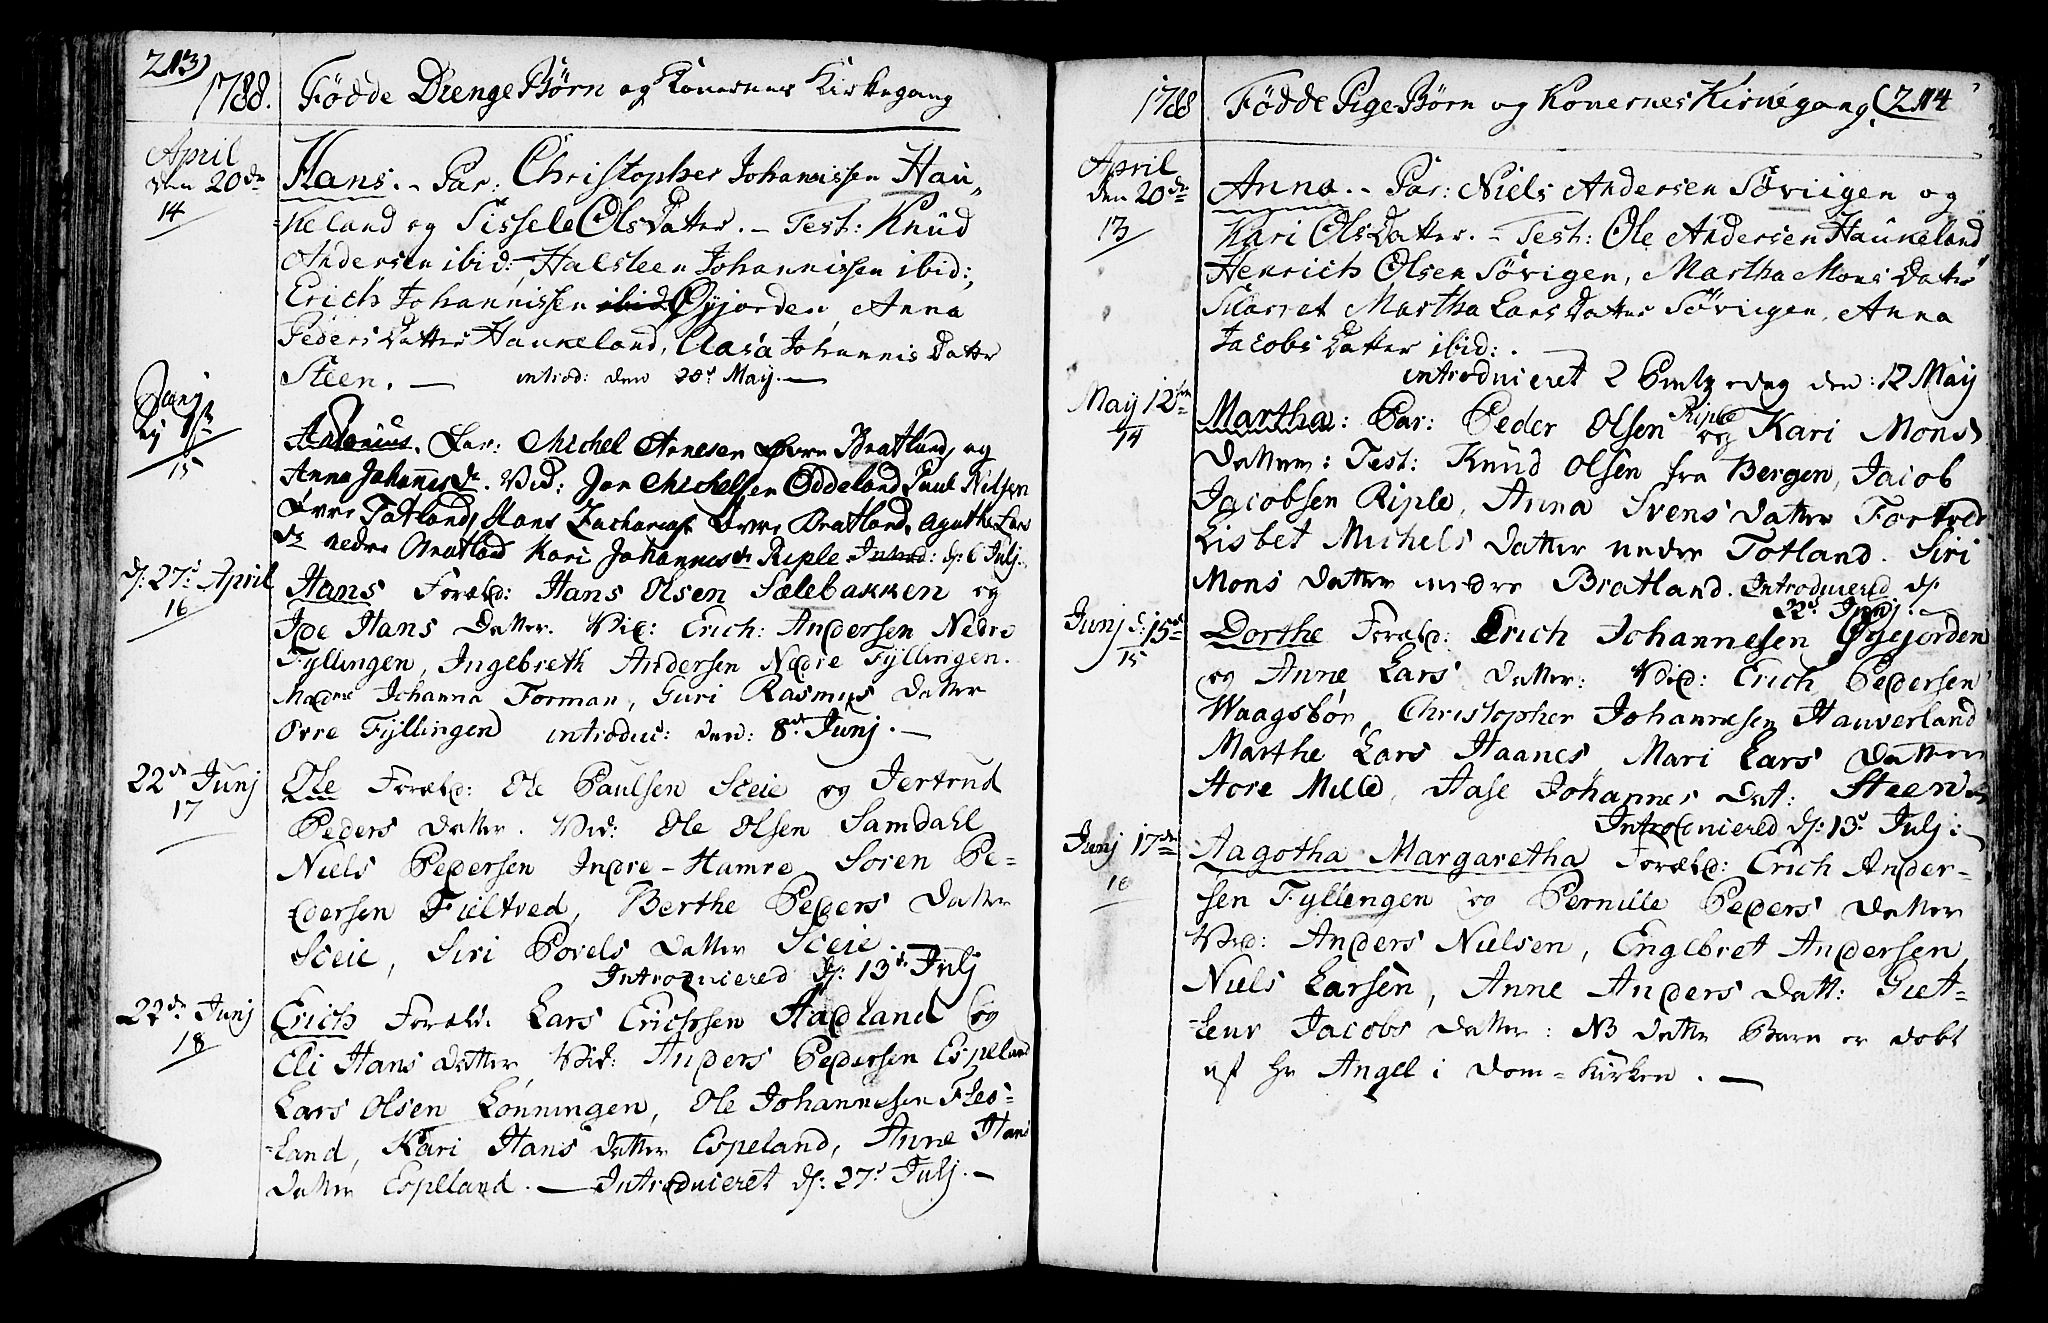 213)
1788. Födde DrengeBörn og Konernes Kirkegang
April
den 20de
14
Hans. - Par: Christopher Johannissen Hau„
-keland og Sissele OlsDatter. - Test: Knud
Andersen ibid: Halsteen Johannissen ibid:,
Erich Johannissen ibid. Øyjorden, Anna
PedersDatter Haukeland, Aasa JohannisDatter
Steen. — introd: den 20d May. —
Junj
15
Antonius. Par: Michel Arnesen Øvre Bratland, og
Anna Johannesdr. Vid: Jan Michelsen Oddeland Paul Nilsen
Øvre Totland, Hans Zacharias: Øvre Bratland, Agathe Lars
dr nedre Bratland Kari Johannesdr Riple Introd: d: 6 Julj.
d: 27d April
16
Hans Foræld: Hans Olsen Sælebakken og
Ide Hans Datter. Vid: Erich: Andersen Nedre
Fyllingen, Ingebreth Andersen Nedre Fyllingen.
Madme Johanna Forman, Guri Rasmus Datter
Øvre Fyllingen introduc: den: 8de Junj. —
22de Junj
17
Ole Foræld: Ole Paulsen Sceie og Jertrud
Peders Datter. Vid: Ole Olsen Samdahl
Niels Pedersen Indre-Hamre Soren Pe-
dersen Fieltved, Berthe Peders Datter
Sceie, Siri Povels Datter Sceie
Introducered d: 13d Julj
22de Junj
18
Erich Foræld. Lars Erichsen Hadland og
Eli Hans Datter, Vid: Anders Pedersen Espeland
Lars Olsen Lønningen, Ole Johannesen Fles-
-land, Kari Hans Datter Espeland, Anne Hans
Datter Espeland. — Introduceret d: 27d Julj. —
1788 Födde PigeBörn og Konernes Kirkegang. (214
April
den 20de
13
Anna. - Par: Niels Andersen Söviigen og
Kari OlsDatter. - Test: Ole Andersen Haukeland
Henrich Olsen Sövigen, Martha MonsDatter
Martha LarsDatter Söviigen, Anna
JacobsDatter ibid: . —
introduceret 2 den: 12 May
May 12
14
Martha: Par: Peder Olsen Riple og Kari Mons
Datter: Test: Knud Olsen fra Bergen, Jacob
Jacobsen Riple, Anna Svens Datter
Lisbet Michels Datter nedre Totland. Siri
Mons Datter nedre Bratland. Introducered d:
22d Junj. —
Junj d: 15d
15
Dorthe Foræld: Erich Johannesen Øyejorden
og Anne Lars Datter: Vid: Erich Pedersen
Waagsbön, Christopher Johannesen Hauverland
Marthe Lars Haanes, Mari Lars Datter
Store Milde, Aase Johannes Dat: Steen
Introducered d: 13d Julj: —
Junj 17de
16
Aagotha Margaretha Foræld: Erich Ander-
sen Fyllengen og Pernille Peders Datter
Vid: Anders Nielsen, Engebret Andersen,
Niels Larsen, Anne Anders Datt: Giet-
-Lene Jacobs Datter: NB dette Barn er dobt
af Hr Angel i Dom=Kirken. —